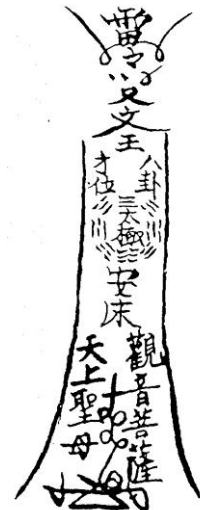 雷令
文王
八卦
才位
太極
安床
觀音菩薩
天上聖母